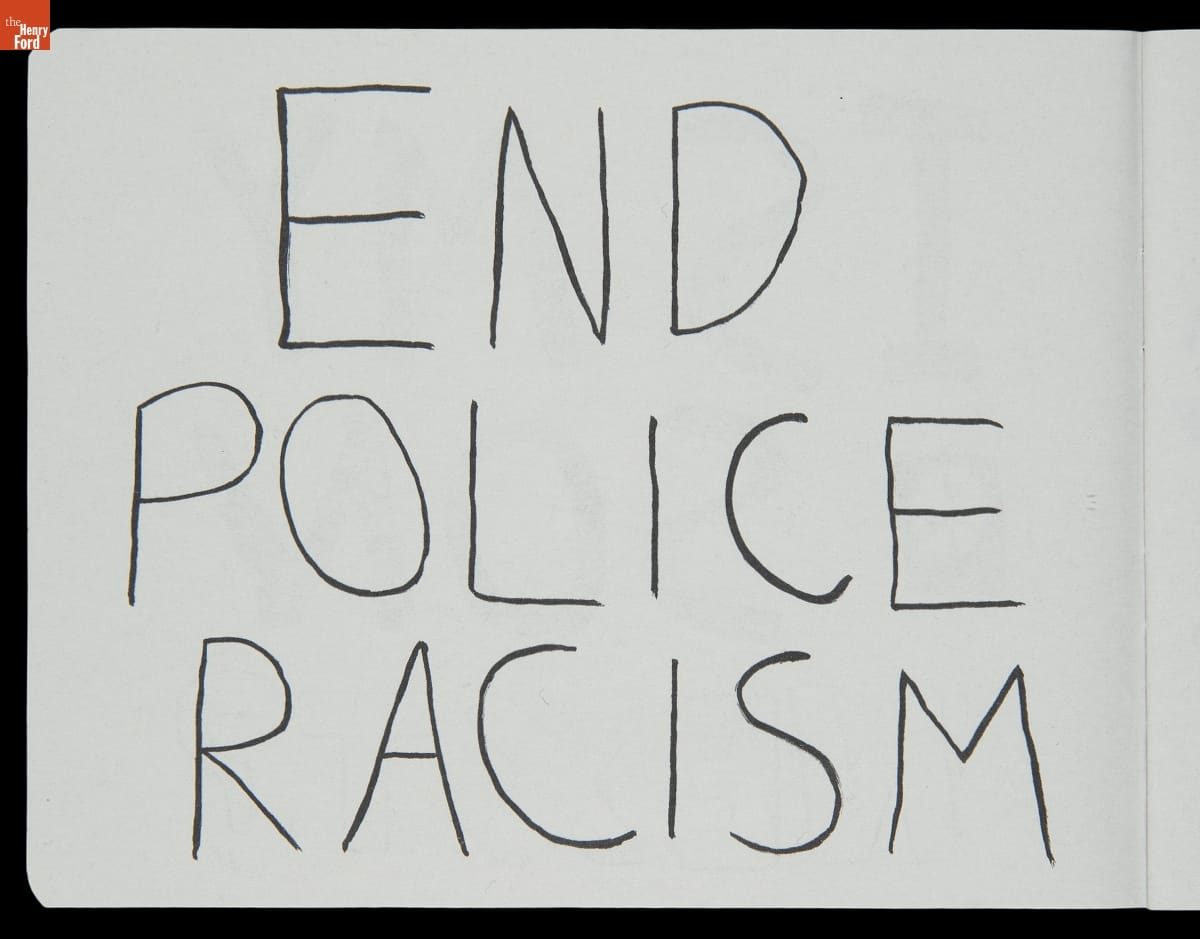 the
Henry
Ford
END
POLICE
RACISM